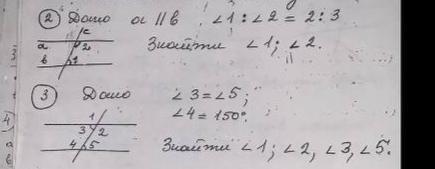 ② Дано a || b ∠1 : ∠2 = 2 : 3
c
a 2
b 1
Знайти ∠1; ∠2.
③ Дано ∠3 = ∠5;
∠4 = 150°.
1
3 2
4 5
Знайти ∠1; ∠2, ∠3, ∠5.